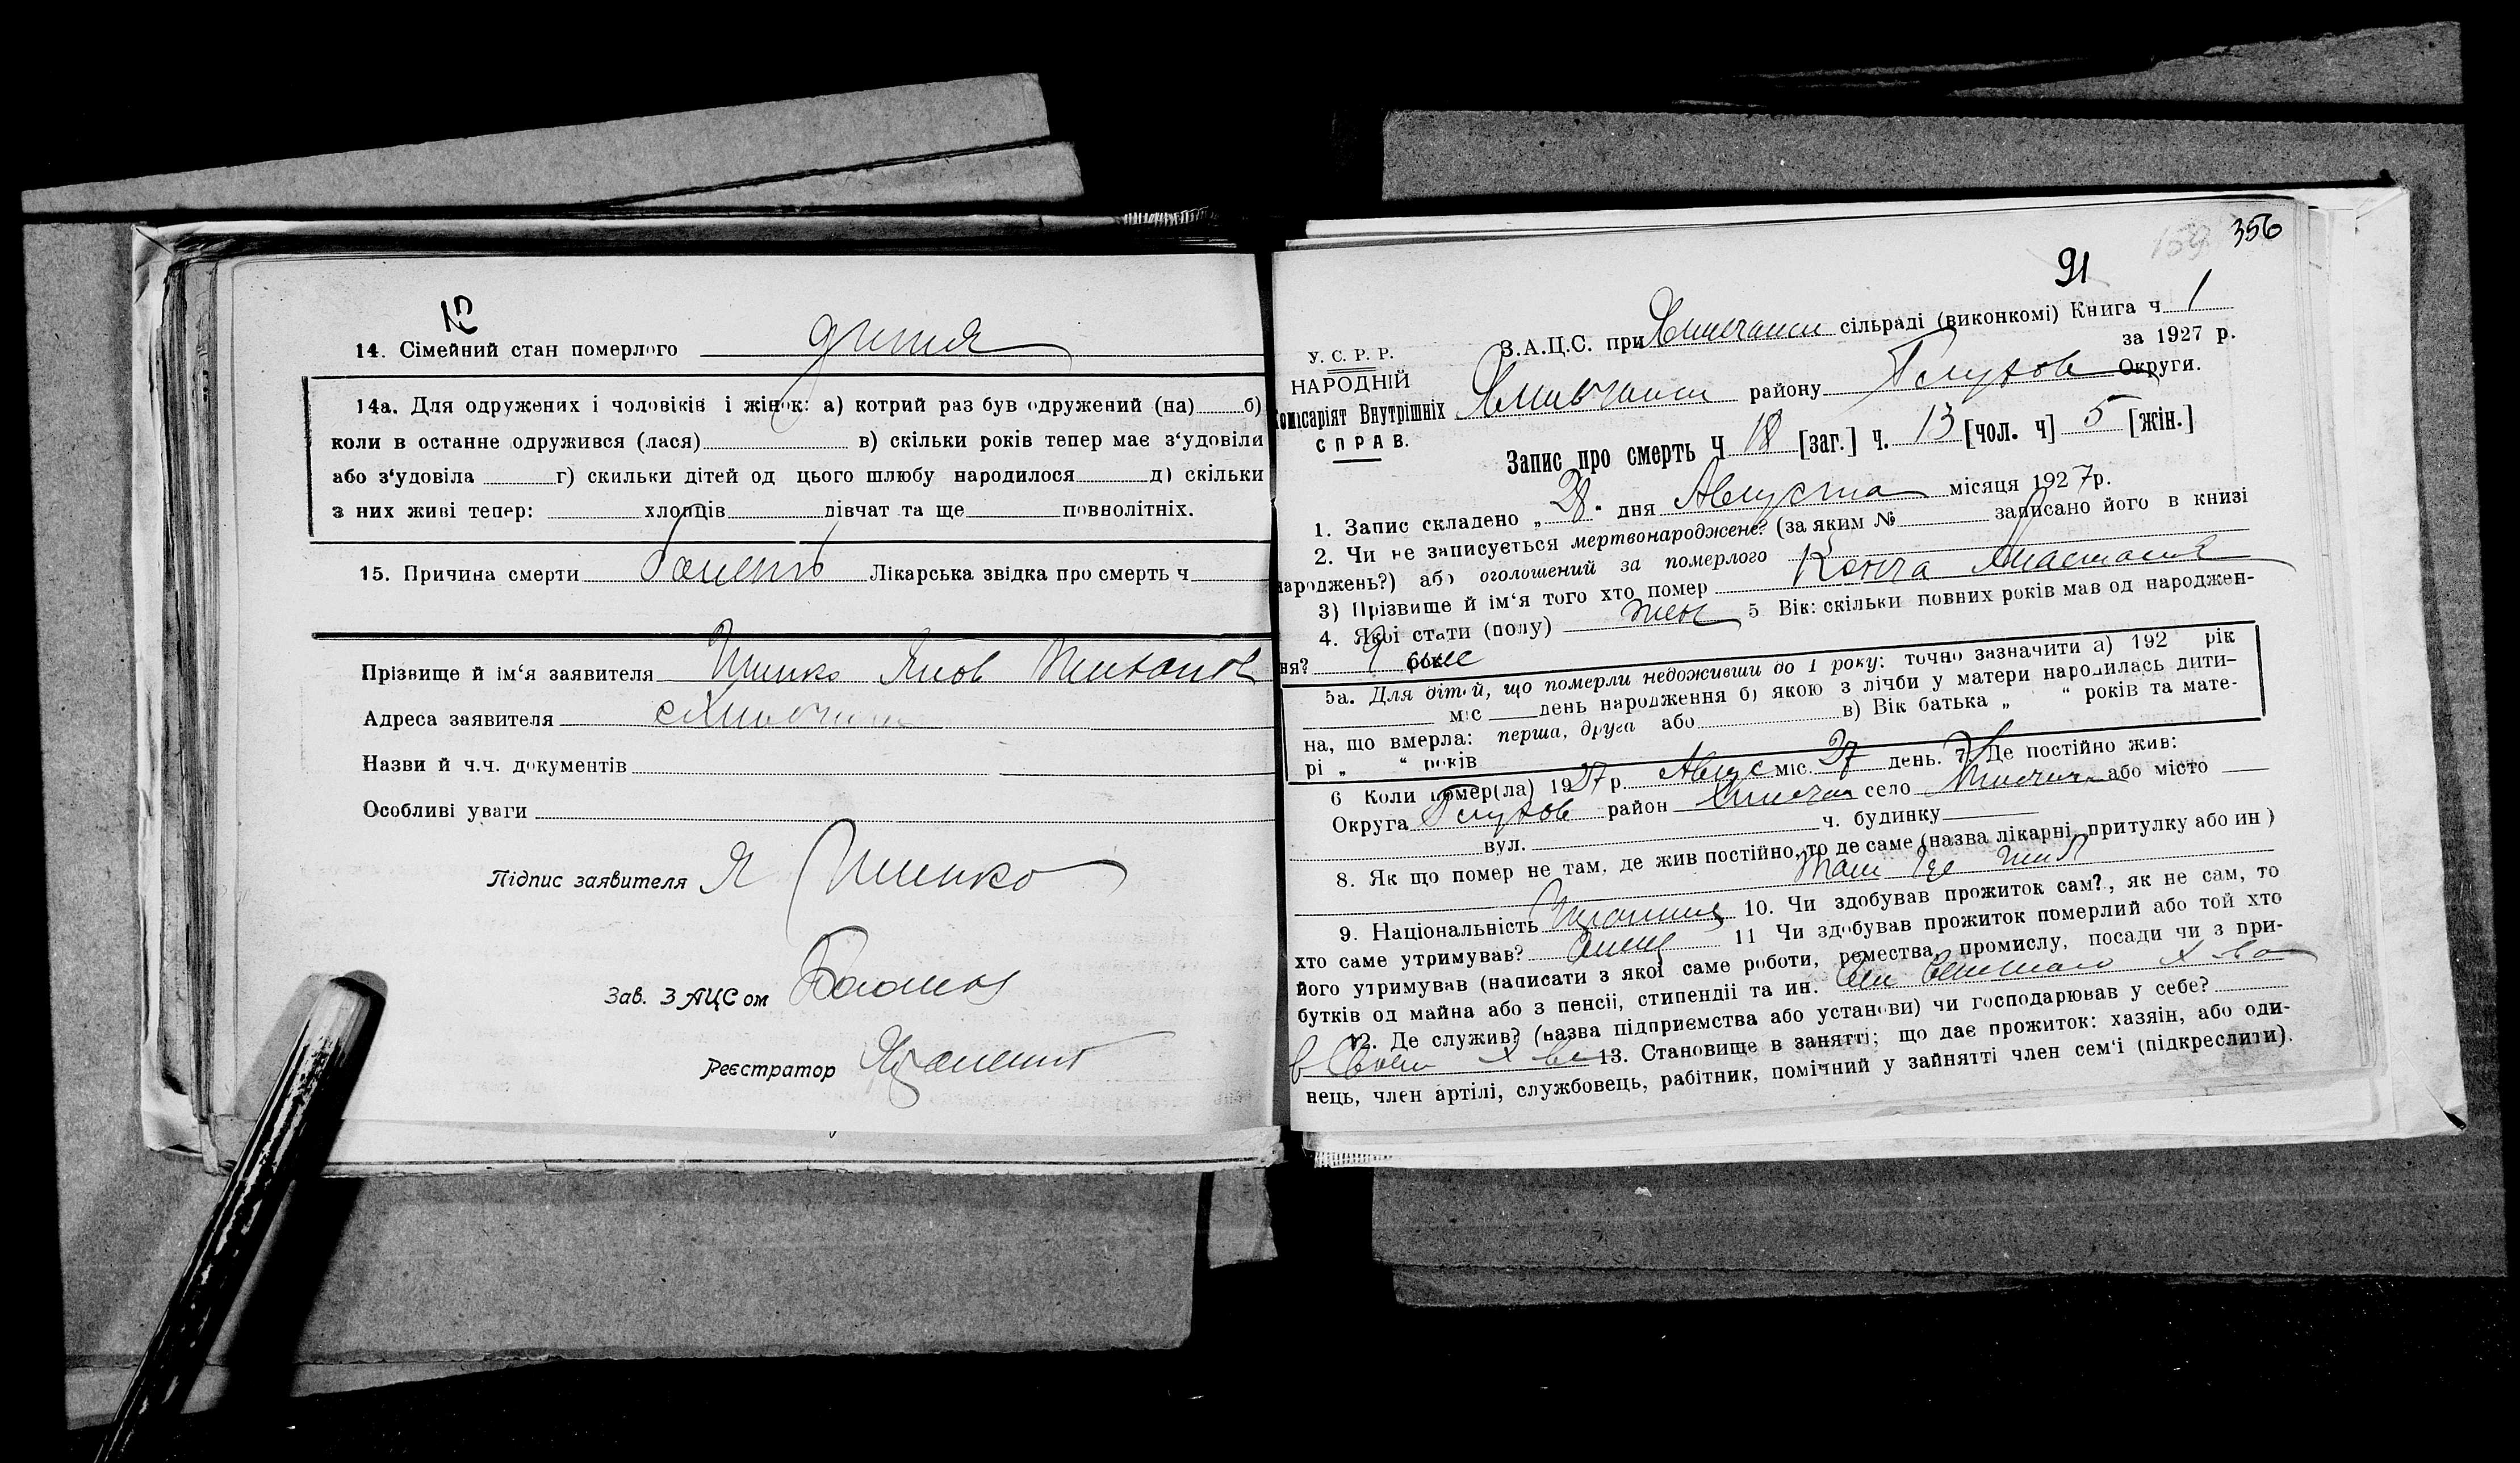 14. Сімейний стан померлого дитя
14а. Для одружених і чоловіків і жінок: а) котрий раз був одружений (на) б)
коли в останне одружився (лася) в) скільки років тепер має з‘удовіли
або з‘удовіла г) скильки дітей од цього шлюбу народилося д) скільки
з них живі тепер: хлопців дівчат та ще повнолітніх.
15. Причина смерти Лікарська звідка про смерть ч
Прізвище й ім‘я заявителя Яков
Адреса заявителя
Назви й ч.ч. документів
Особливі уваги
Підпис заявителя Я
Зав. ЗАЦСом
Реєстратор
356
159
91
У. С. Р. Р.
НАРОДНІЙ
Комісаріят Внутрішніх
СПРАВ.
З.А.Ц.С. при сільраді (виконкомі) Книга ч 1
за 1927 р.
району Глухов Округи.
Запис про смерть Ч 18 [заг.] ч. 13 [чол. ч] 5 [жін.]
1. Запис складено „28“ дня Августа місяця 1927р.
2. Чи не записується мертвонароджене? (за яким № записано його в книзі
народжень?) або оголошений за померлого
3) Прізвище й ім‘я того хто помер Анастасия
4. Якої стати (полу) жен 5 Вік: скільки повних років мав од народжен-
ня?
5а. Для дітей, що померли недоживши до 1 року: точно зазначити а) 192 рік
міс день народження б) якою з лічби у матери народилась дити-
на, що вмерла: перша, друга або в) Вік батька „ “ років та мате-
рі „ “ років
6 Коли помер(ла) 1927 р. Авгус міс. 27 день. 7. Де постійно жив:
Округа Глухов район село або місто
вул. ч. будинку
8. Як що помер не там, де жив постійно, то де саме (назва лікарні, притулку або ин)
там где жил
9. Національність 10. Чи здобував прожиток сам?, як не сам, то
хто саме утримував? отец 11 Чи здобував прожиток померлий або той хто
його утримував (написати з якої саме роботи, ремества, промислу, посади чи з при-
бутків од майна або з пенсії, стипендії та ин.
12. Де служив? (назва підприємства або установи) чи господарював у себе?
в 13. Становище в занятті; що дає прожиток: хазяін, або оди-
нець, член артілі, службовець, рабітник, помічний у зайнятті член сем‘ї (підкреслити).